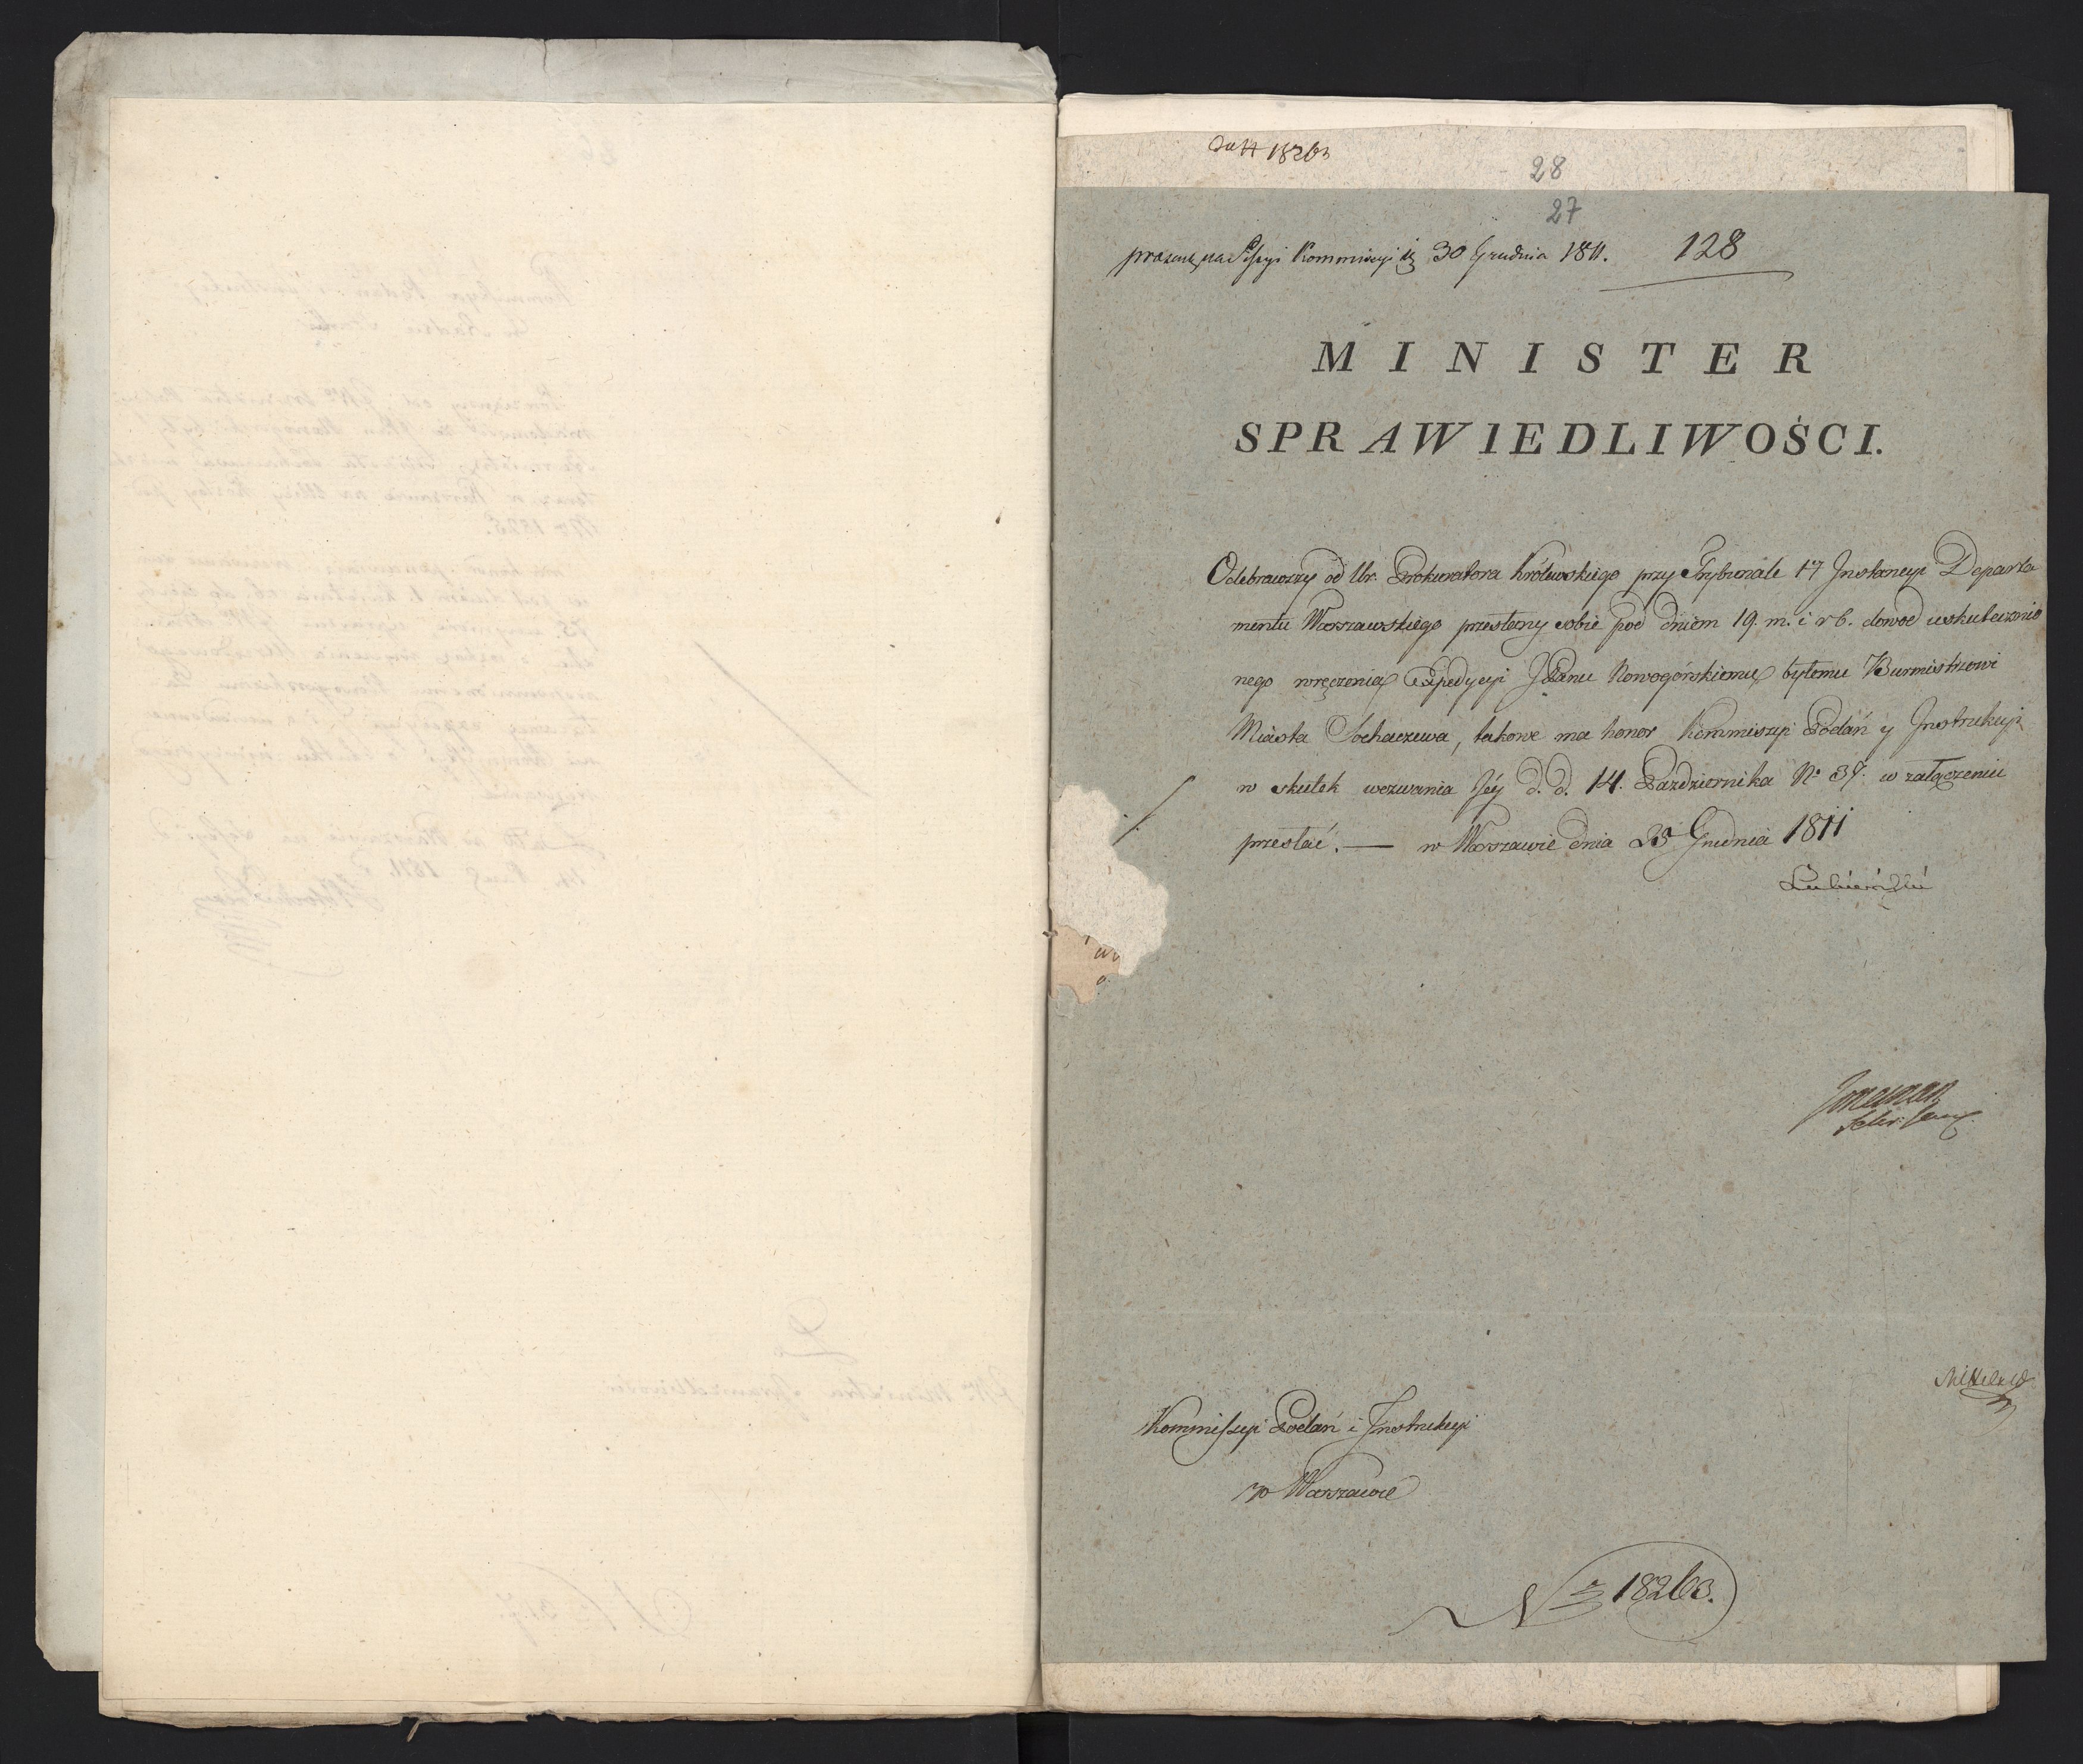 18263
28
27
na Sessyi Kommissyi 30 Grudnia 1811. 128
MINISTER
SPRAWIEDLIWOŚCI.
Odebrawszy od Ur. Prokuratora Królewskiego przy Trybunale 1ey Jnstancyi Departa
mentu Warszawskiego przesłany sobie pod dniem 19. m. i r b. dowod uskutecznio
nego wręczenia Expedycyi JPanu Nowogórskiemu byłemu Burmistrzowi
Miasta Sochaczewa, takowe ma honor Kommissyi Podań y Jnstrukcyi
w skutek wezwania Jéy d. d. 14. Pazdziernika No 37. w załączeniu
przesłać. — w Warszawie dnia 28 Grudnia 1811
Łubieński
Kommissyi Podań i Jnstrukcyi
w Warszawie
No 18263.